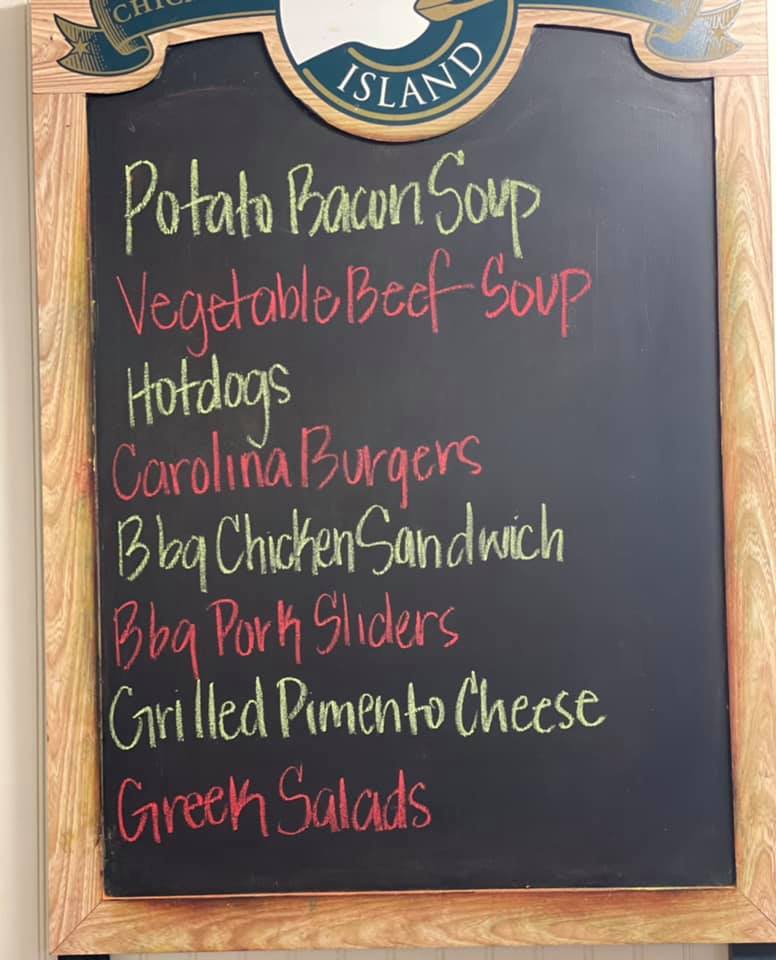 CHIC
ISLAND
Potato Bacon Soup
Vegetable Beef Soup
Hotdogs
Carolina Burgers
Bbq Chicken Sandwich
Bbq Pork Sliders
Grilled Pimento Cheese
Greek Salads